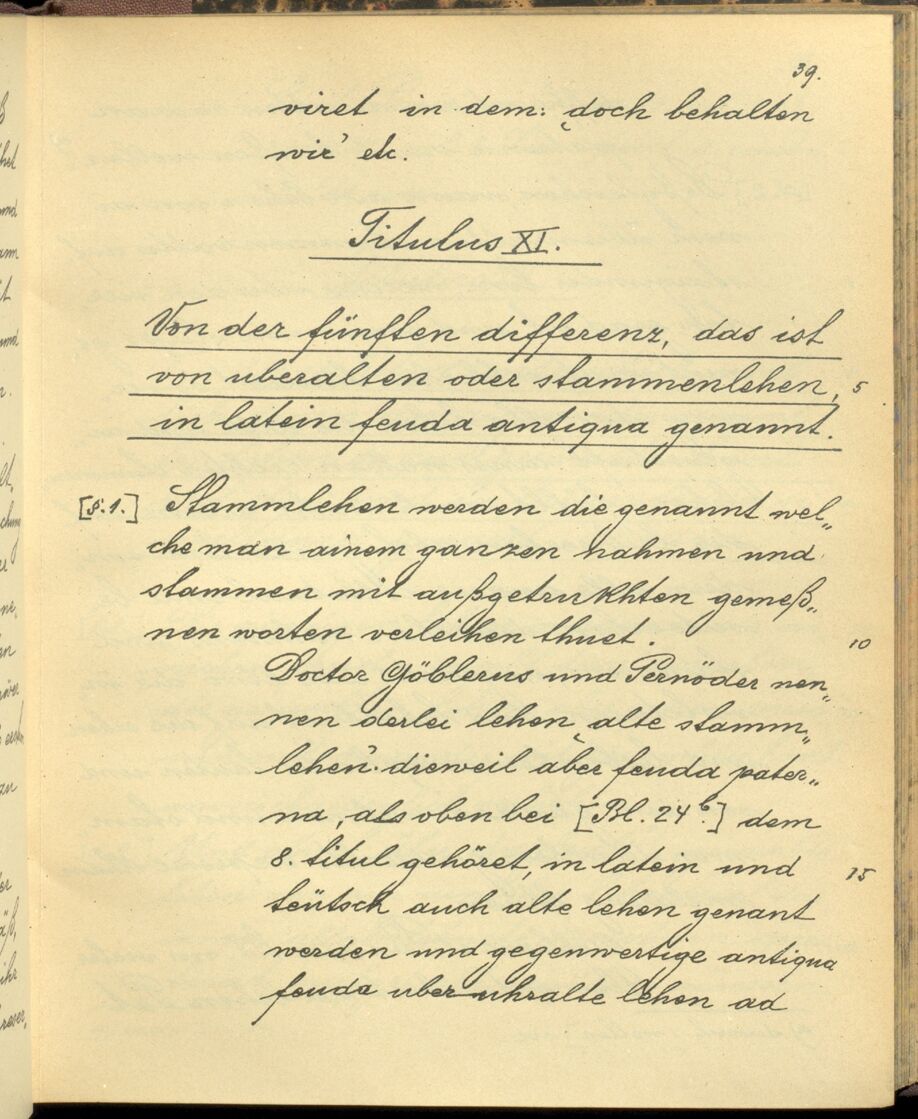 39.
viret in dem: „doch behalten
wir" etc.
Titulus XI.
Von der fünften differenz, das ist
von uberalten oder stammenlehen, 5
in latein feuda antiqua genannt.
[§.1.] Stammlehen werden die genannt wel„
che man ainem ganzen nahmen und
stammen mit außgetrukhten gemeß„
nen worten verleihen thuet. 10
Doctor Göblerus und Pernöder nen„
nen derlei lehen „alte stamm„
lehen". dieweil aber feuda pater„
na, als oben bei [Bl. 24b.] dem
8. titul gehöret, in latein und 15
teütsch auch alte lehen genant
werden und gegenwertige antiqua
feuda uber uhralte lehen ad